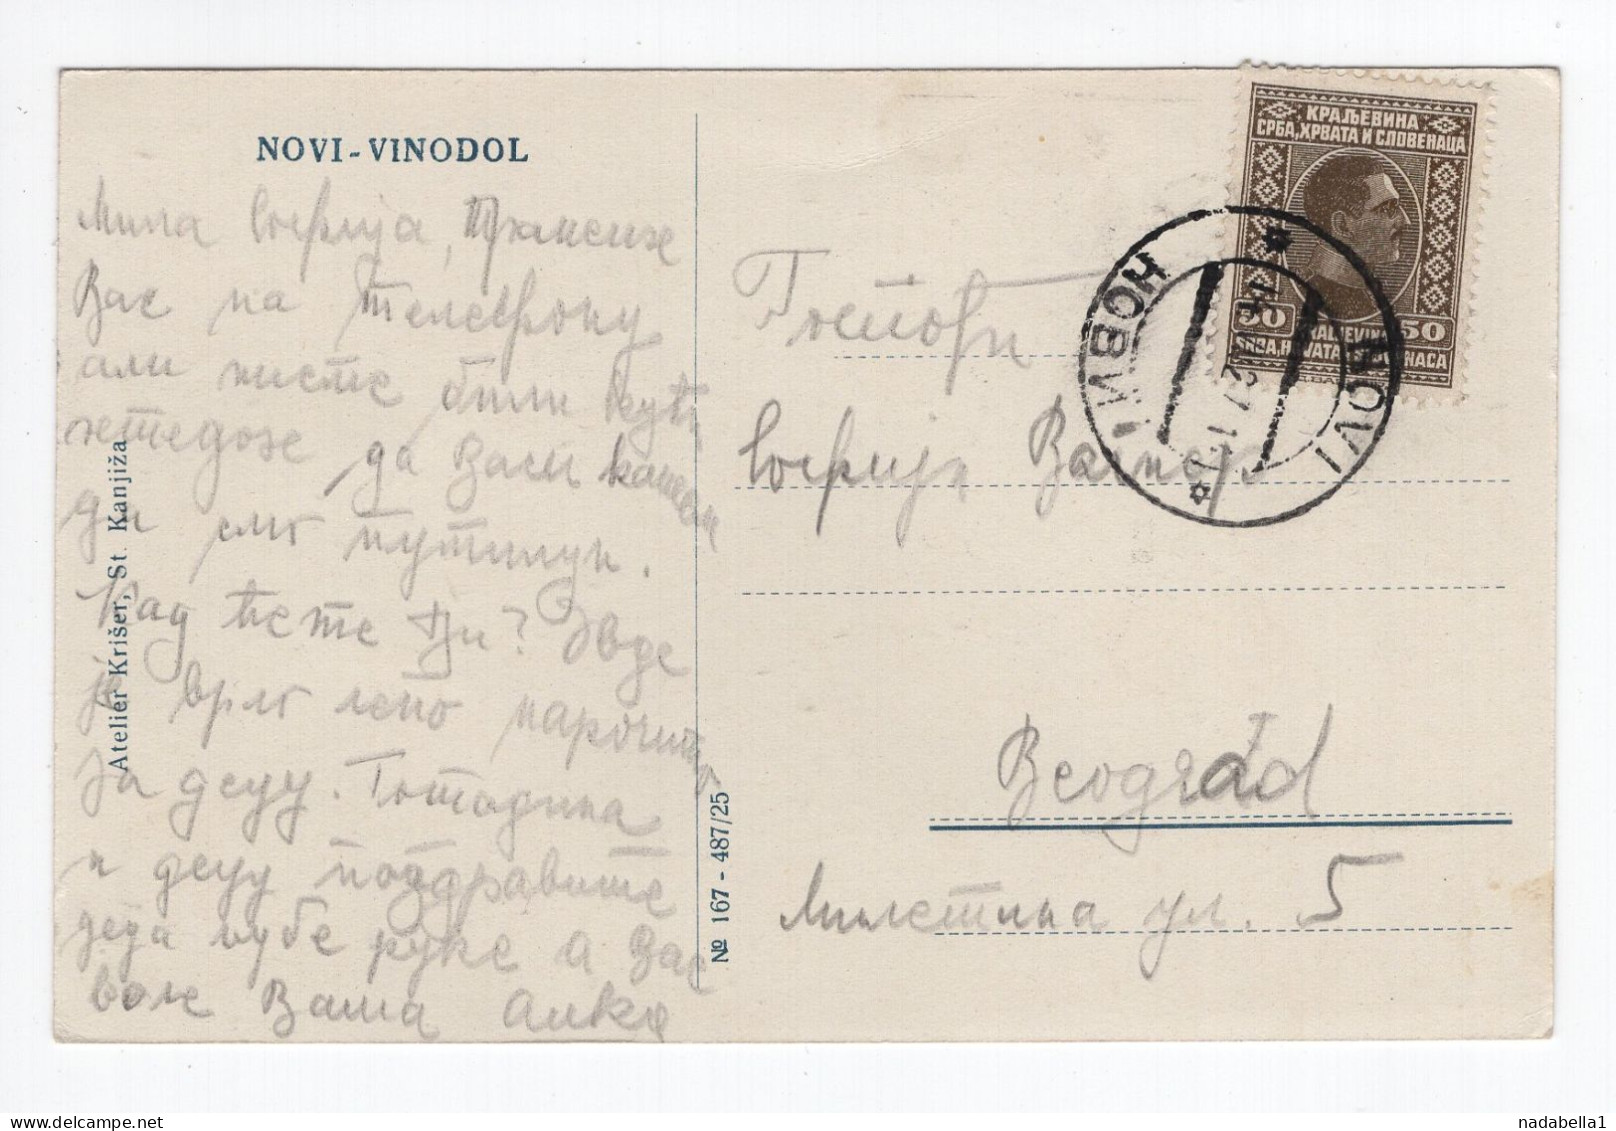 NOVI-VINODOL
Мила Софија, Тражисмо
Вас на телефону
али нисте били кући
да Вам кажем
да смо путници.
Кад ћете Ви? Овде
је врло лепо нарочито
за децу. Господина
и децу поздравите
деда љубе руке а Вас
воле Ваша Алка
Atelier Krišer, St. Kanjiža
№ 167 - 487/25
КРАЉЕВИНА
СРБА, ХРВАТА И СЛОВЕНАЦА
50 50
NOVI
НОВИ
Госпођи
Софија Вагнер
Beograd
Милетина ул. 5
nadabella1